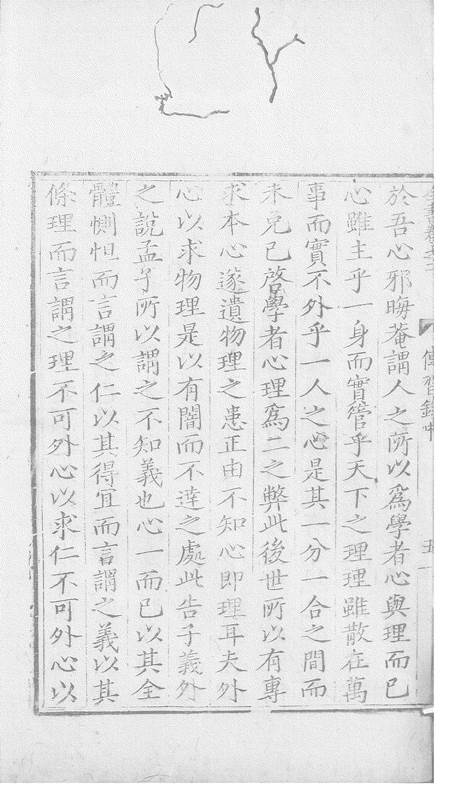 傳習錄中
於吾心邪晦菴謂人之所以爲學者心與理而已
心雖主乎一身而實管乎天下之理理雖散在萬
事而實不外乎一人之心是其一分一合之間而
未免已啓學者心理爲二之弊此後世所以有專
求本心遂遺物理之患正由不知心即理耳夫外
心以求物理是以有闇而不達之處此告子義外
之說孟子所以謂之不知義也心一而已以其全
體惻怛而言謂之仁以其得宜而言謂之義以其
條理而言謂之理不可外心以求仁不可外心以